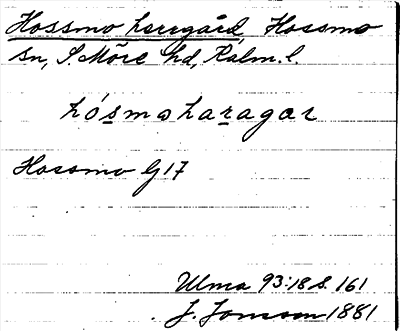 Hossmo herrgård, Hossmo
sn, S. Möre hd, Kalm. l.
hósmoharagar
Hossmo G 17
Ulma 93:18 s. 161
J. Jonsson 1881